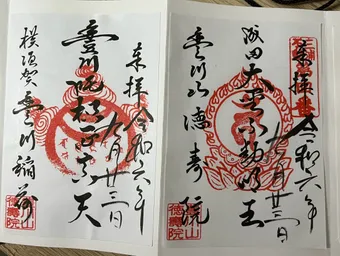 奉拝
令和六年
九月廿三日
成田大聖不動明王
豊川山德寿院
奉拝
令和六年
九月廿三日
豊川吒枳尼真天
横須賀豊川稲荷